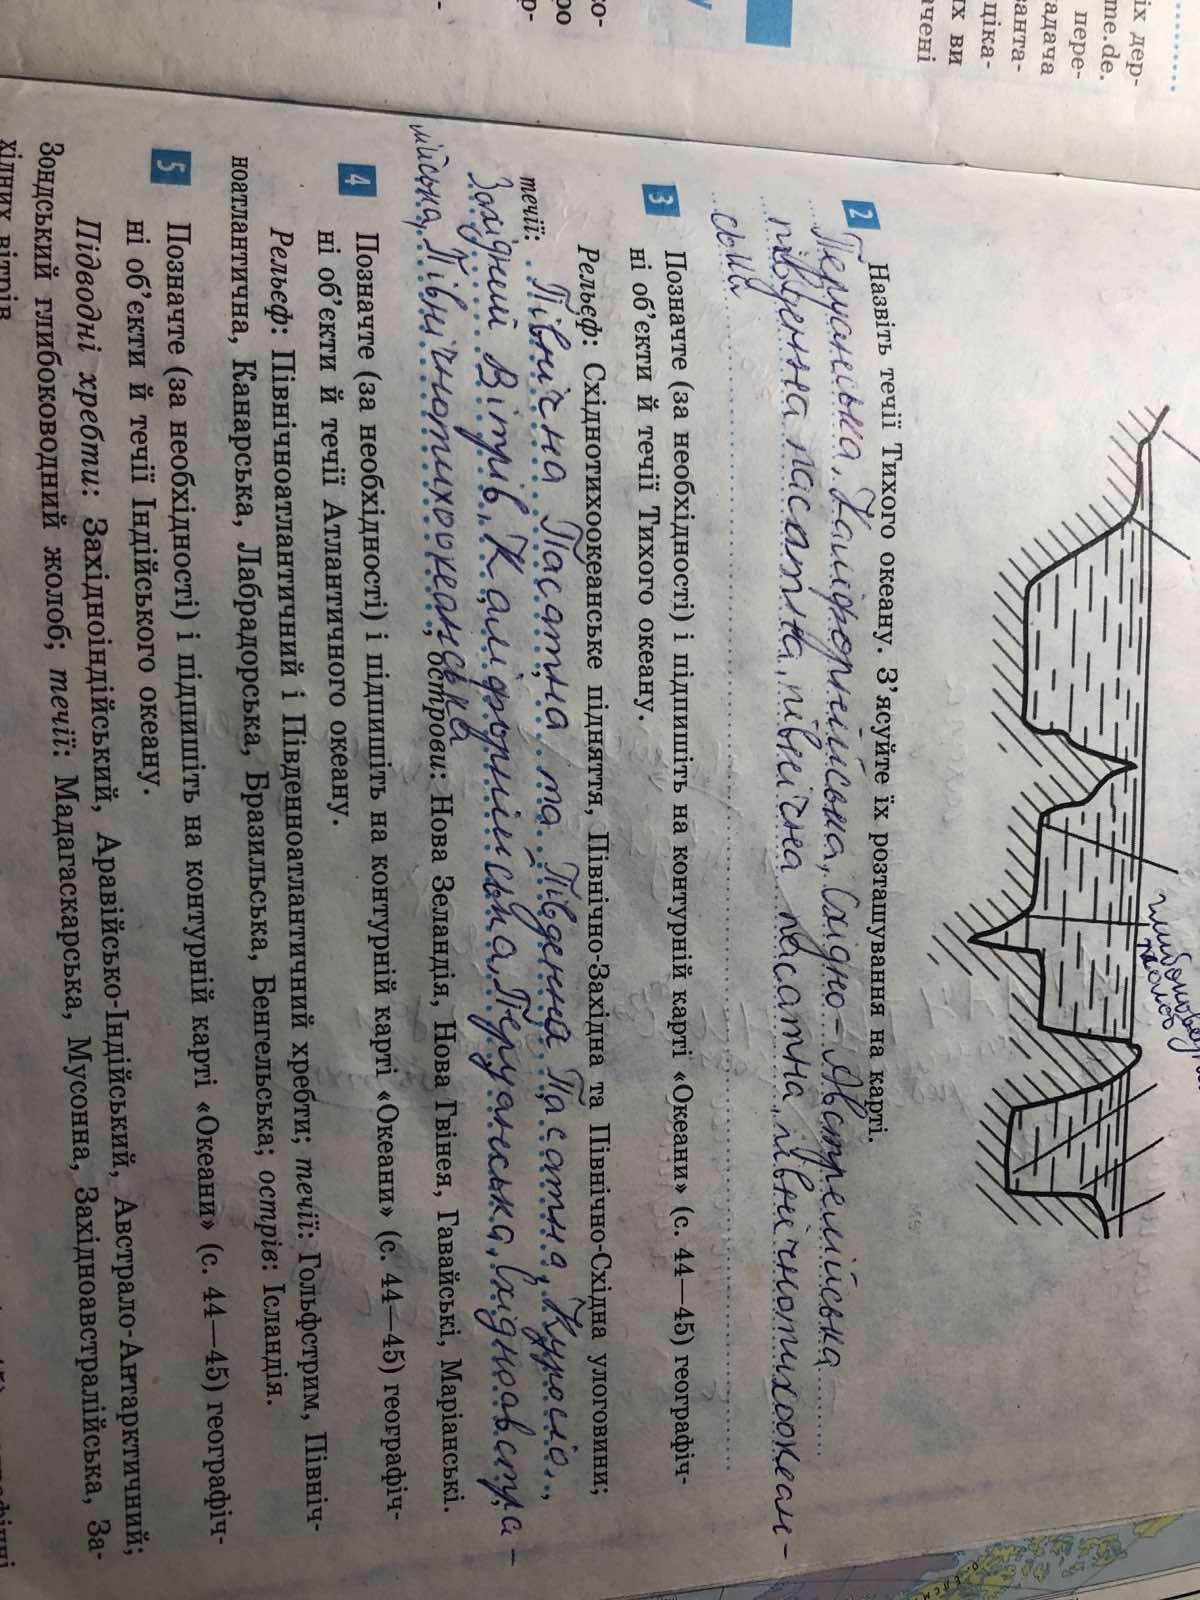 іх дер-
me.de.
пере-
адача
ванта-
ціка-
их ви
ачені
ко-
ро
ор-
у
глибоководн
жолоб
2 Назвіть течії Тихого океану. З’ясуйте їх розташування на карті.
Перуанська, Каліфорнійська, Східно-Австрелійська
південна пасатна, північна пасатна, північнотихоокеан-
ська
3 Позначте (за необхідності) і підпишіть на контурній карті «Океани» (с. 44—45) географіч-
ні об’єкти й течії Тихого океану.
Рельєф: Східнотихоокеанське підняття, Північно-Західна та Північно-Східна улоговини;
течії: Північна Пасатна та Південна Пасатна, Куросіо,
Західний Вітрів, Каліфорнійська, Перуанська, Східноавстра-
лійська, Північнотихоокеанська; острови: Нова Зеландія, Нова Гвінея, Гавайські, Маріанські.
4 Позначте (за необхідності) і підпишіть на контурній карті «Океани» (с. 44—45) географіч-
ні об’єкти й течії Атлантичного океану.
Рельєф: Північноатлантичний і Південноатлантичний хребти; течії: Гольфстрим, Північ-
ноатлантична, Канарська, Лабрадорська, Бразильська, Бенгельська; острів: Ісландія.
5 Позначте (за необхідності) і підпишіть на контурній карті «Океани» (с. 44—45) географіч-
ні об’єкти й течії Індійського океану.
Підводні хребти: Західноіндійський, Аравійсько-Індійський, Австрало-Антарктичний;
Зондський глибоководний жолоб; течії: Мадагаскарська, Мусонна, Західноавстралійська, За-
хідних вітрів